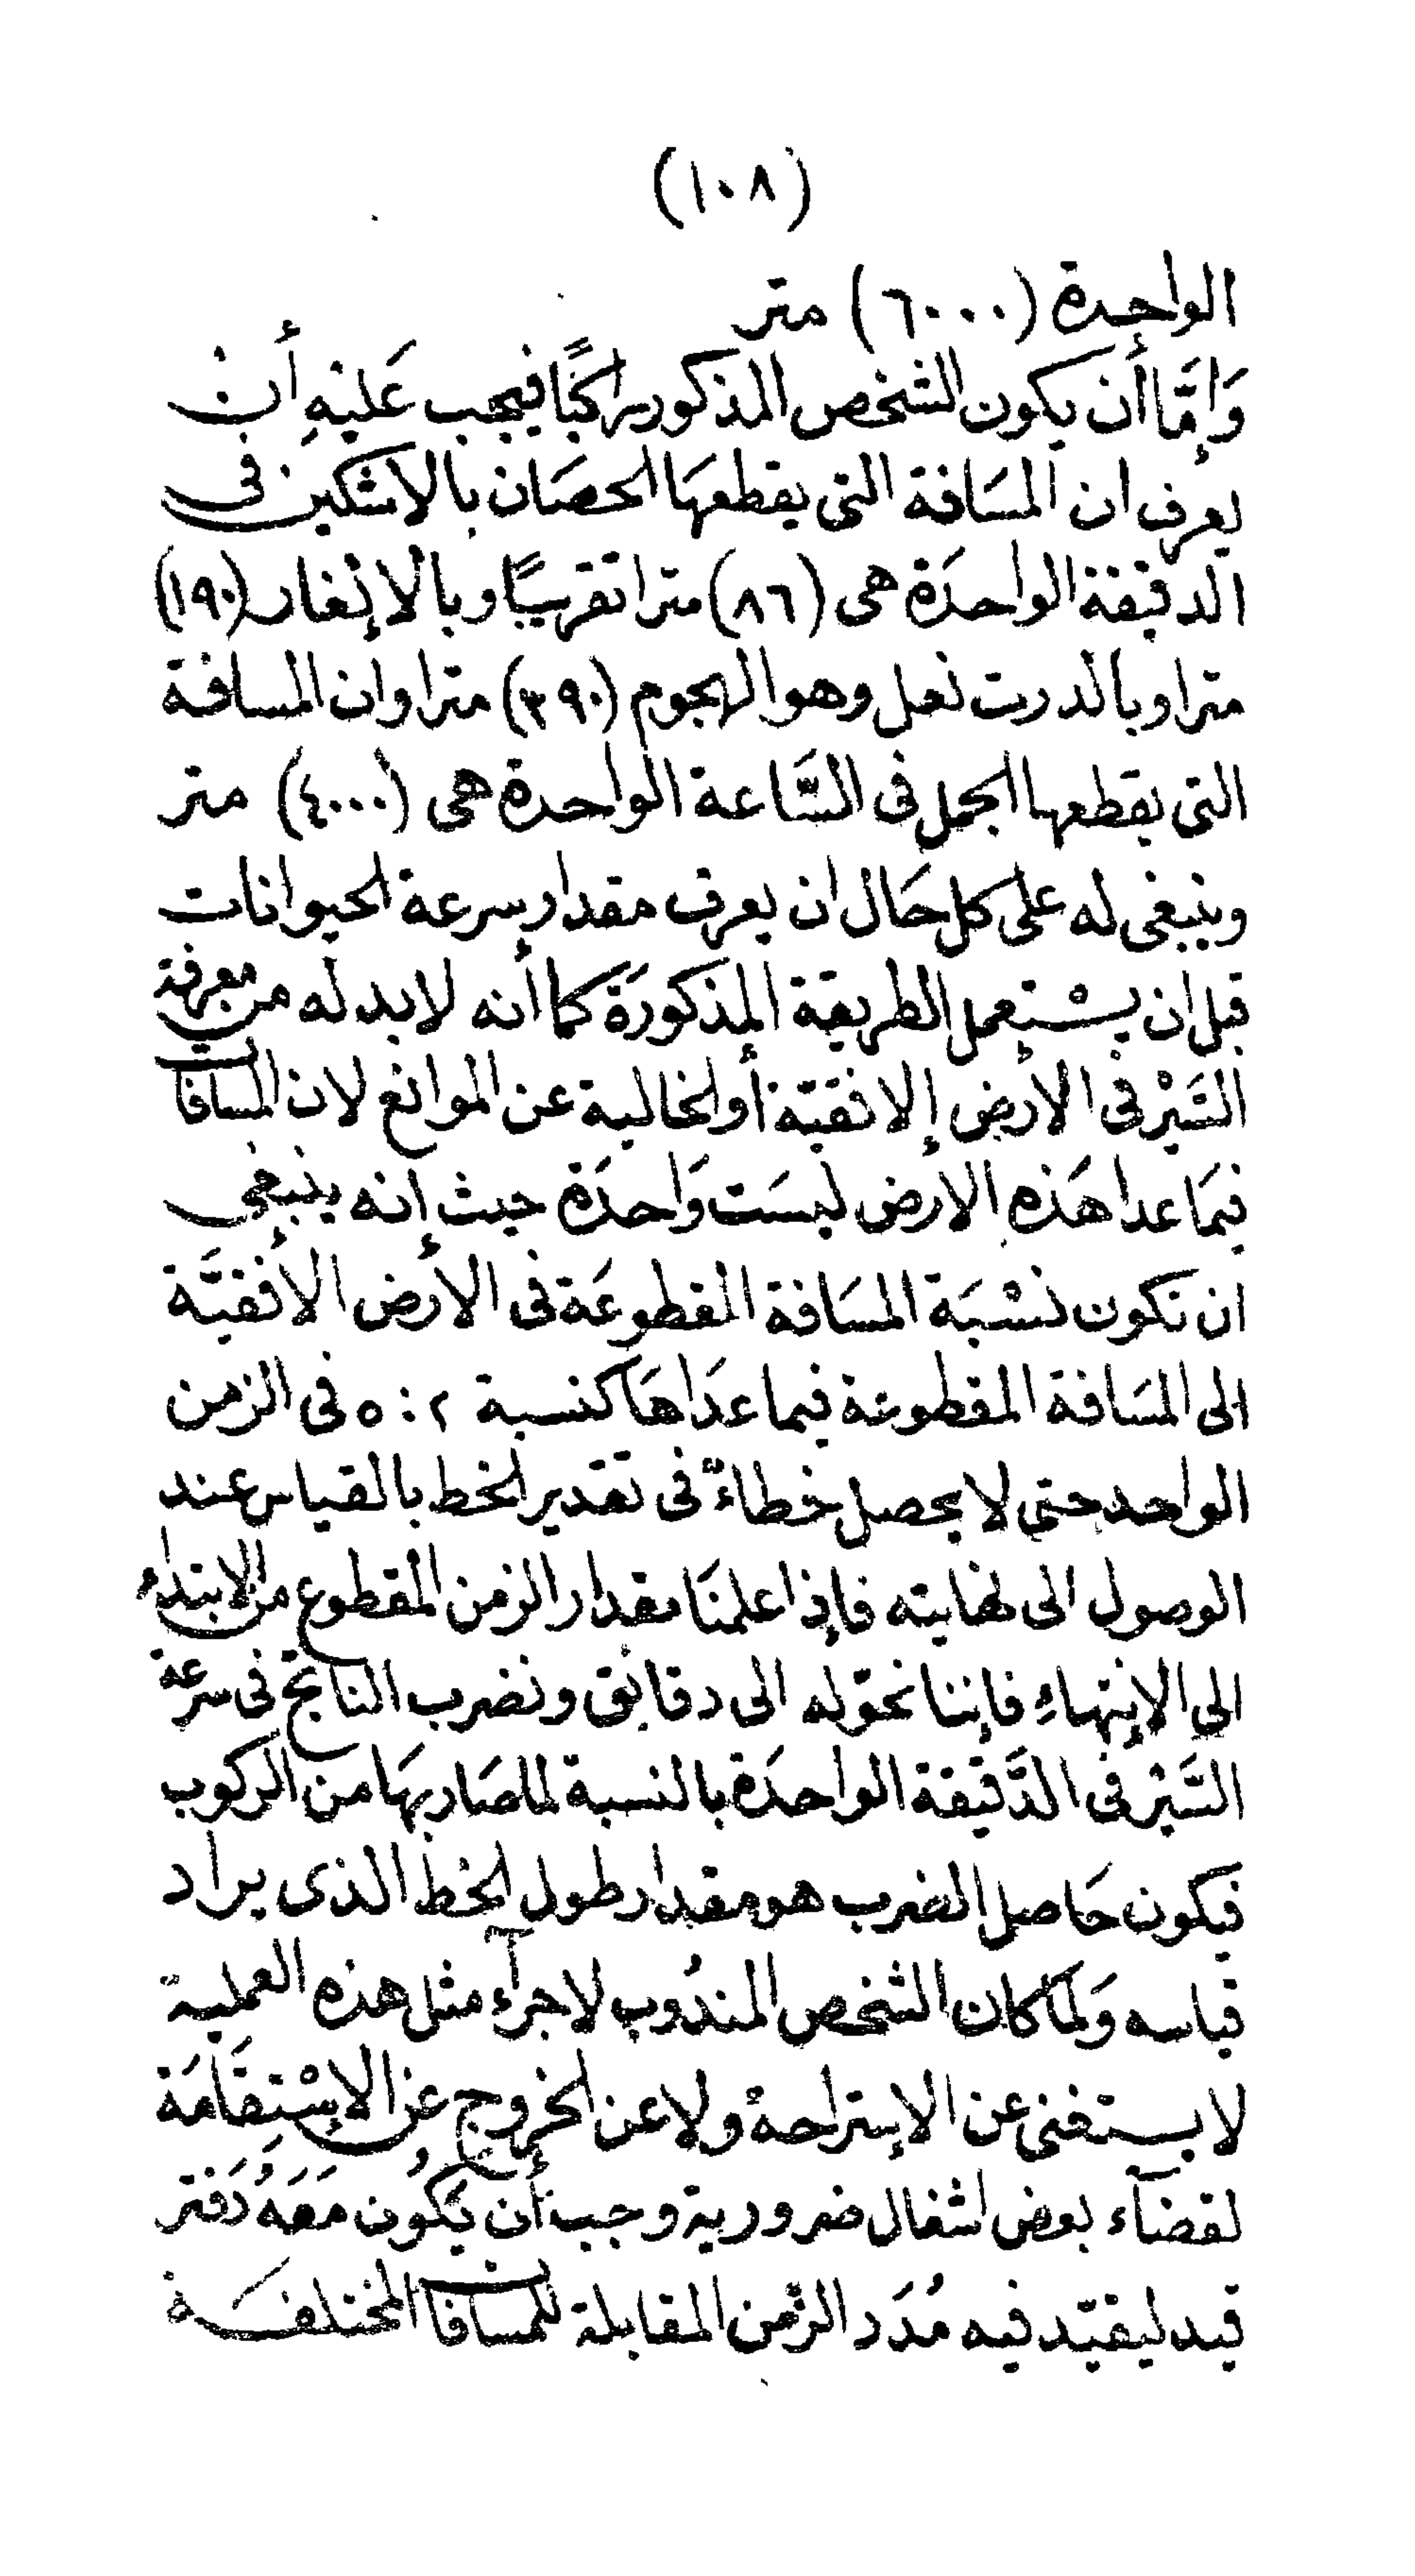 (١٠٨)
الواحدة (٦٠٠٠) متر
وَإِمَّا أن يكون الشخص المذكور راكبًا فيجب عَليْهِ أن
يعرف ان المسَافة التى يقطعهَا الحصَان بالاشكين فى
الدقيقة الواحدَة هى (٨٦) مترا تقريبًا وبالإنغار (١٩٠)
مترا وبالدرت نعل وهو الهجوم (٣٩٠) مترا وان المسافة
التى يقطعها الجمل فى السَّاعة الواحدة هى (٤٠٠٠) متر
وينبغى له على كل حَال ان يعرف مقدار سرعة الحيوانات
قبل ان يسْتعمل الطريقة المذكورَة كما أنه لابد له من معرفة
السَّيْر فى الأرض الافقيّة أو الخالية عن الموانع لان المسافات
فيمَا عدا هَذه الارض ليسَت وَاحدَة حيث إنه ينبغى
ان تكون نسْبَة المسَافة المقطوعَة فى الأرض الافقيَّة
الى المسَافة المقطوعة فيما عدَاهَا كنسبة ٢ : ٥ فى الزمن
الواحد حتى لا يحصل خطاءٌ فى تقدير الخط بالقياس عند
الوصول الى نهايته فإذا علمنَا مقدار الزمن المقطوع من الابتداء
الى الإنتهاءِ فإننا نحوّله الى دقائق ونضرب الناتج فى سرعة
السَّيْر فى الدَّقيقة الواحدَة بالنسبة لما صَار بهَا من الركوب
فيكون حَاصل الضرب هو مقدار طول الخط الذى يراد
قياسه وَلما كان الشخص المندُوب لاجرآء مثل هذه العملية
لا يستغنى عن الإستراحة ولا عن الخروج عن الإسْتِقَامَة
لقضآء بعض اشغال ضرورية وجب أن يَكُون مَعَهُ دَفتر
قيد ليقيّد فيه مُدَد الزّمن المقابلة للمسافات المختلفَة